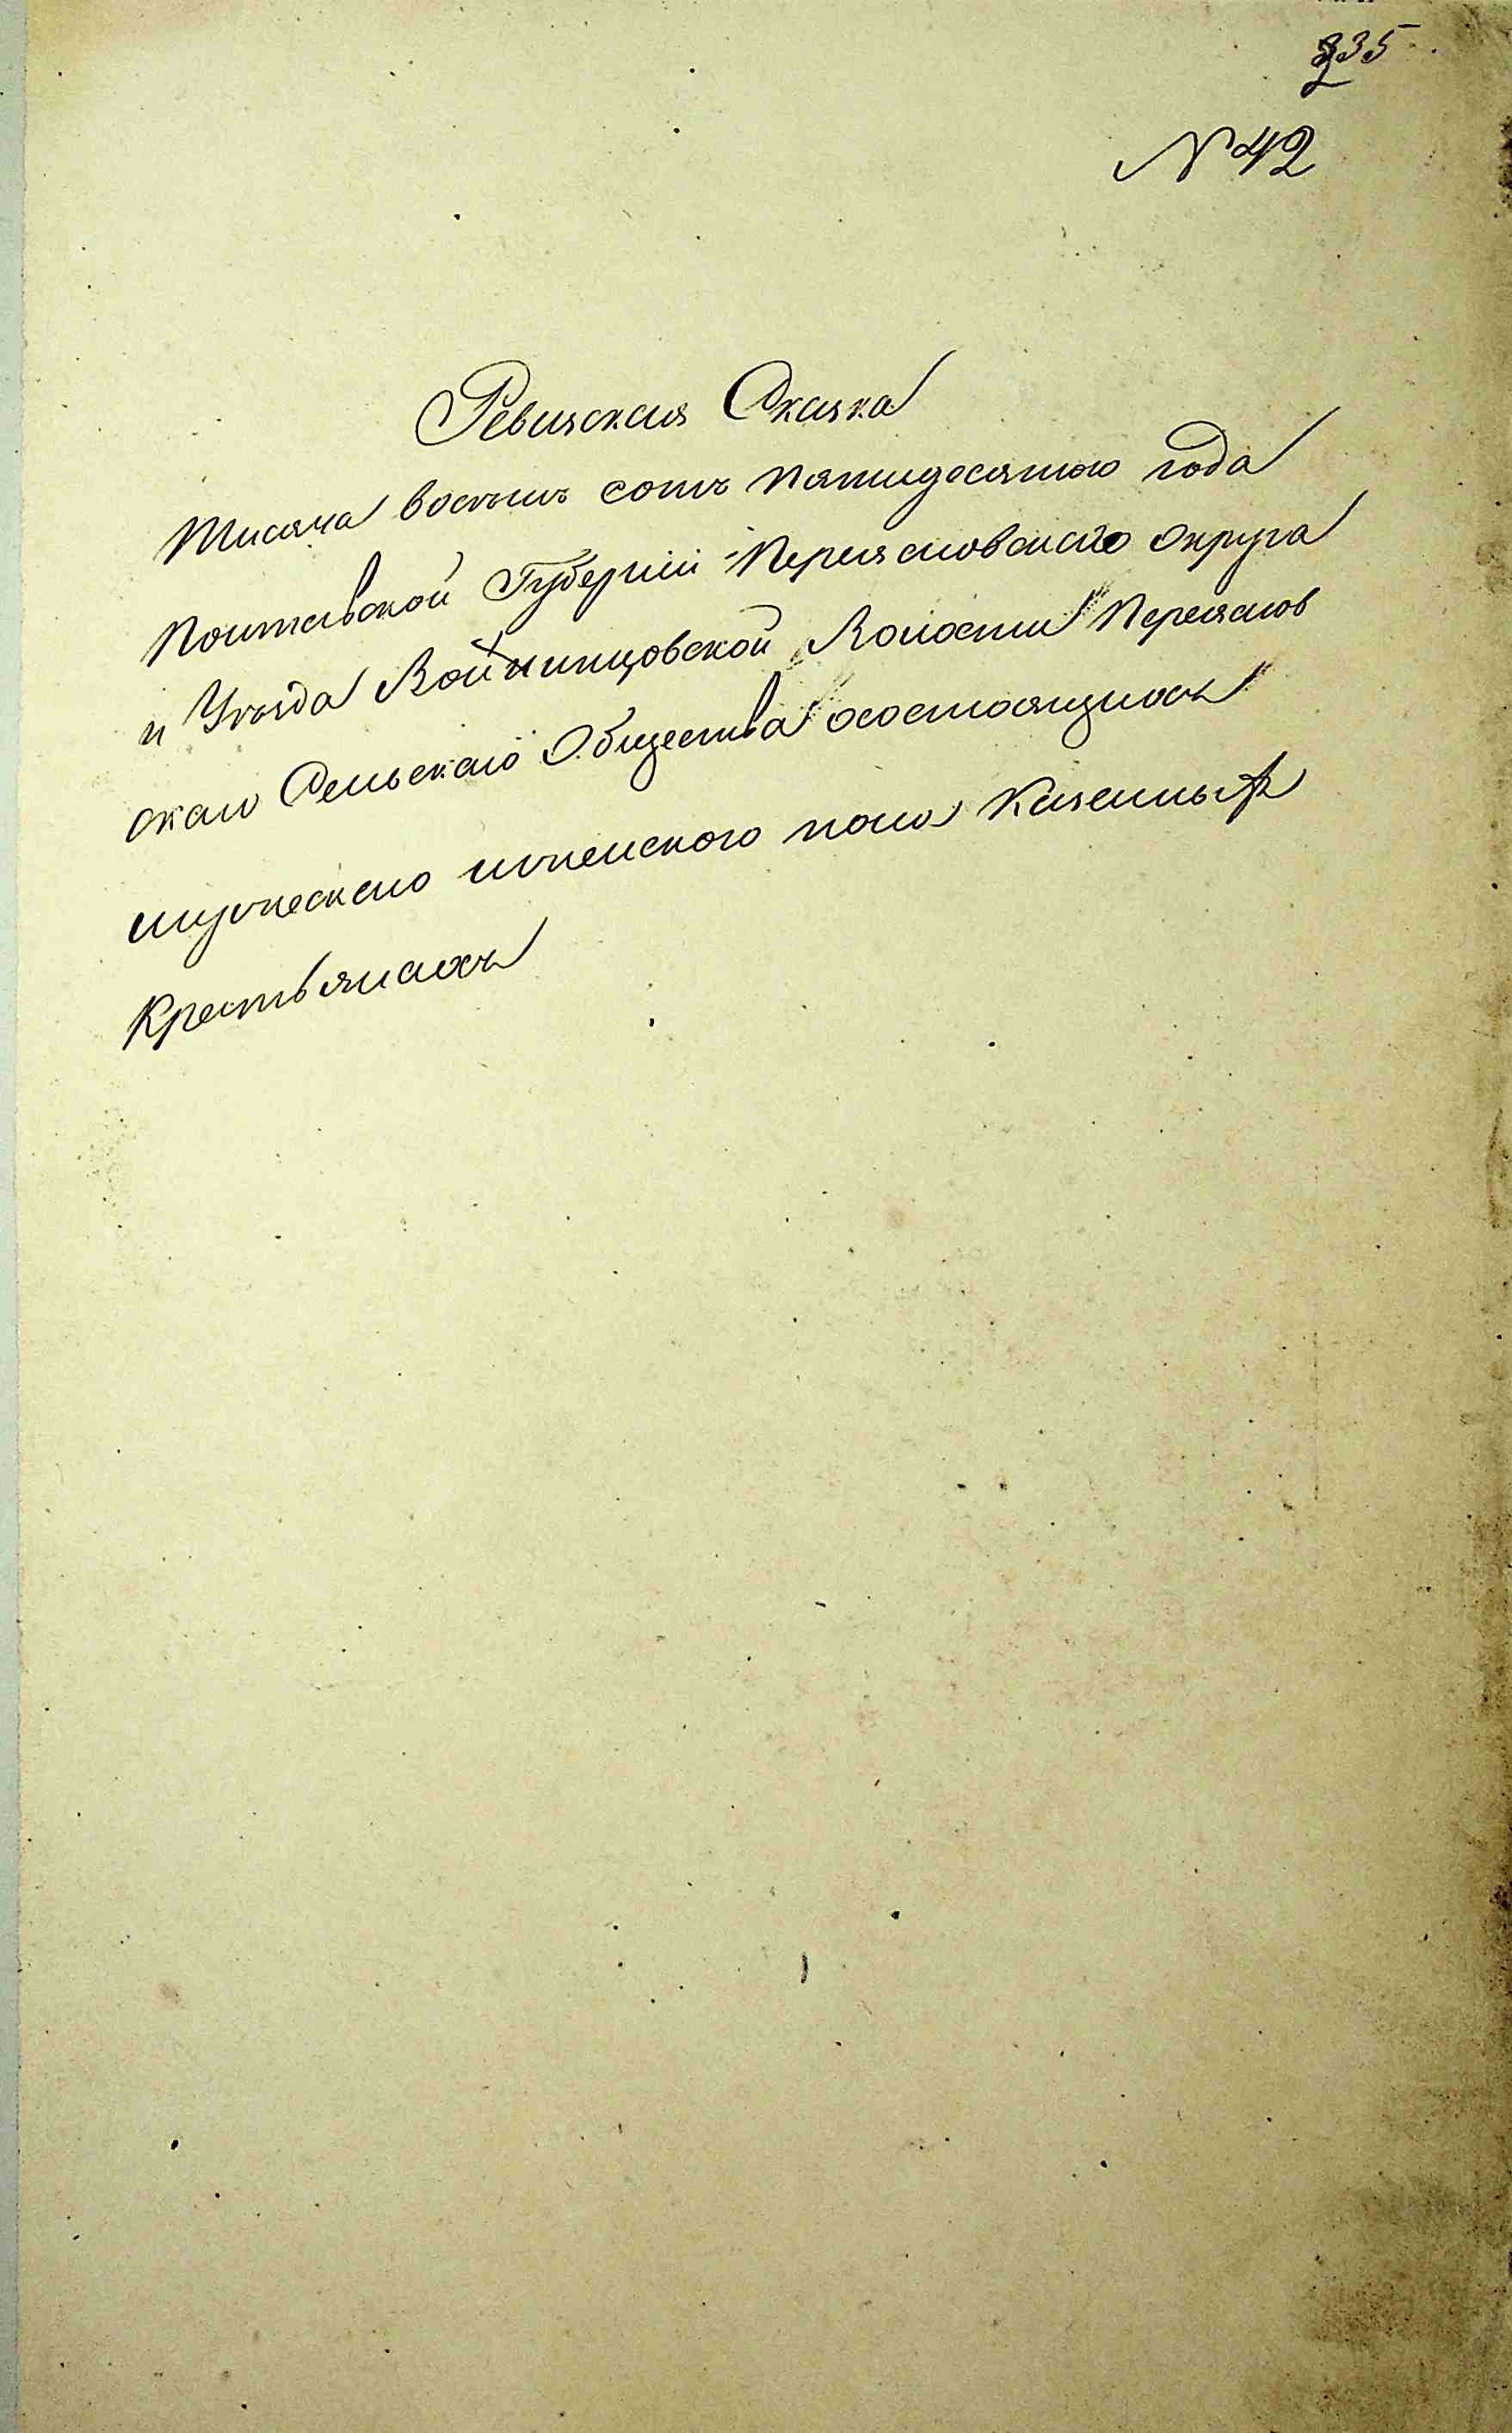 335
№ 42
Ревизская Сказка
Тисяча восемь сотъ пятидесятого года
Полтавской Губернии Переясловского Округа
и Уезда Войнинцовской Волости Переяслов
скаго Сельскаго Общества осостоящихъ
мужескаго иженского пола Казенныхъ
Крестьянахъ